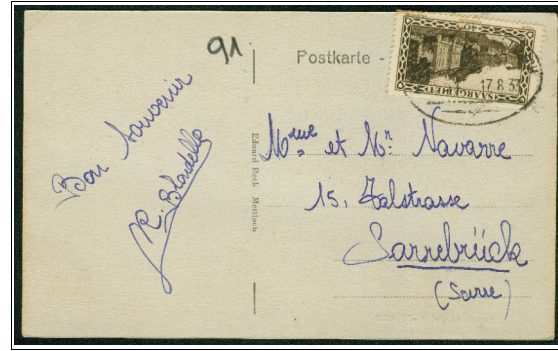 91
Postkarte -
SAARGEBIET
17 8 32
Bon souvenir
R. Blondelle
Eduard Beck Mettlach
Mme et Mr. Navarre
15, Talstrasse
Sarrebrück
(Sarre)